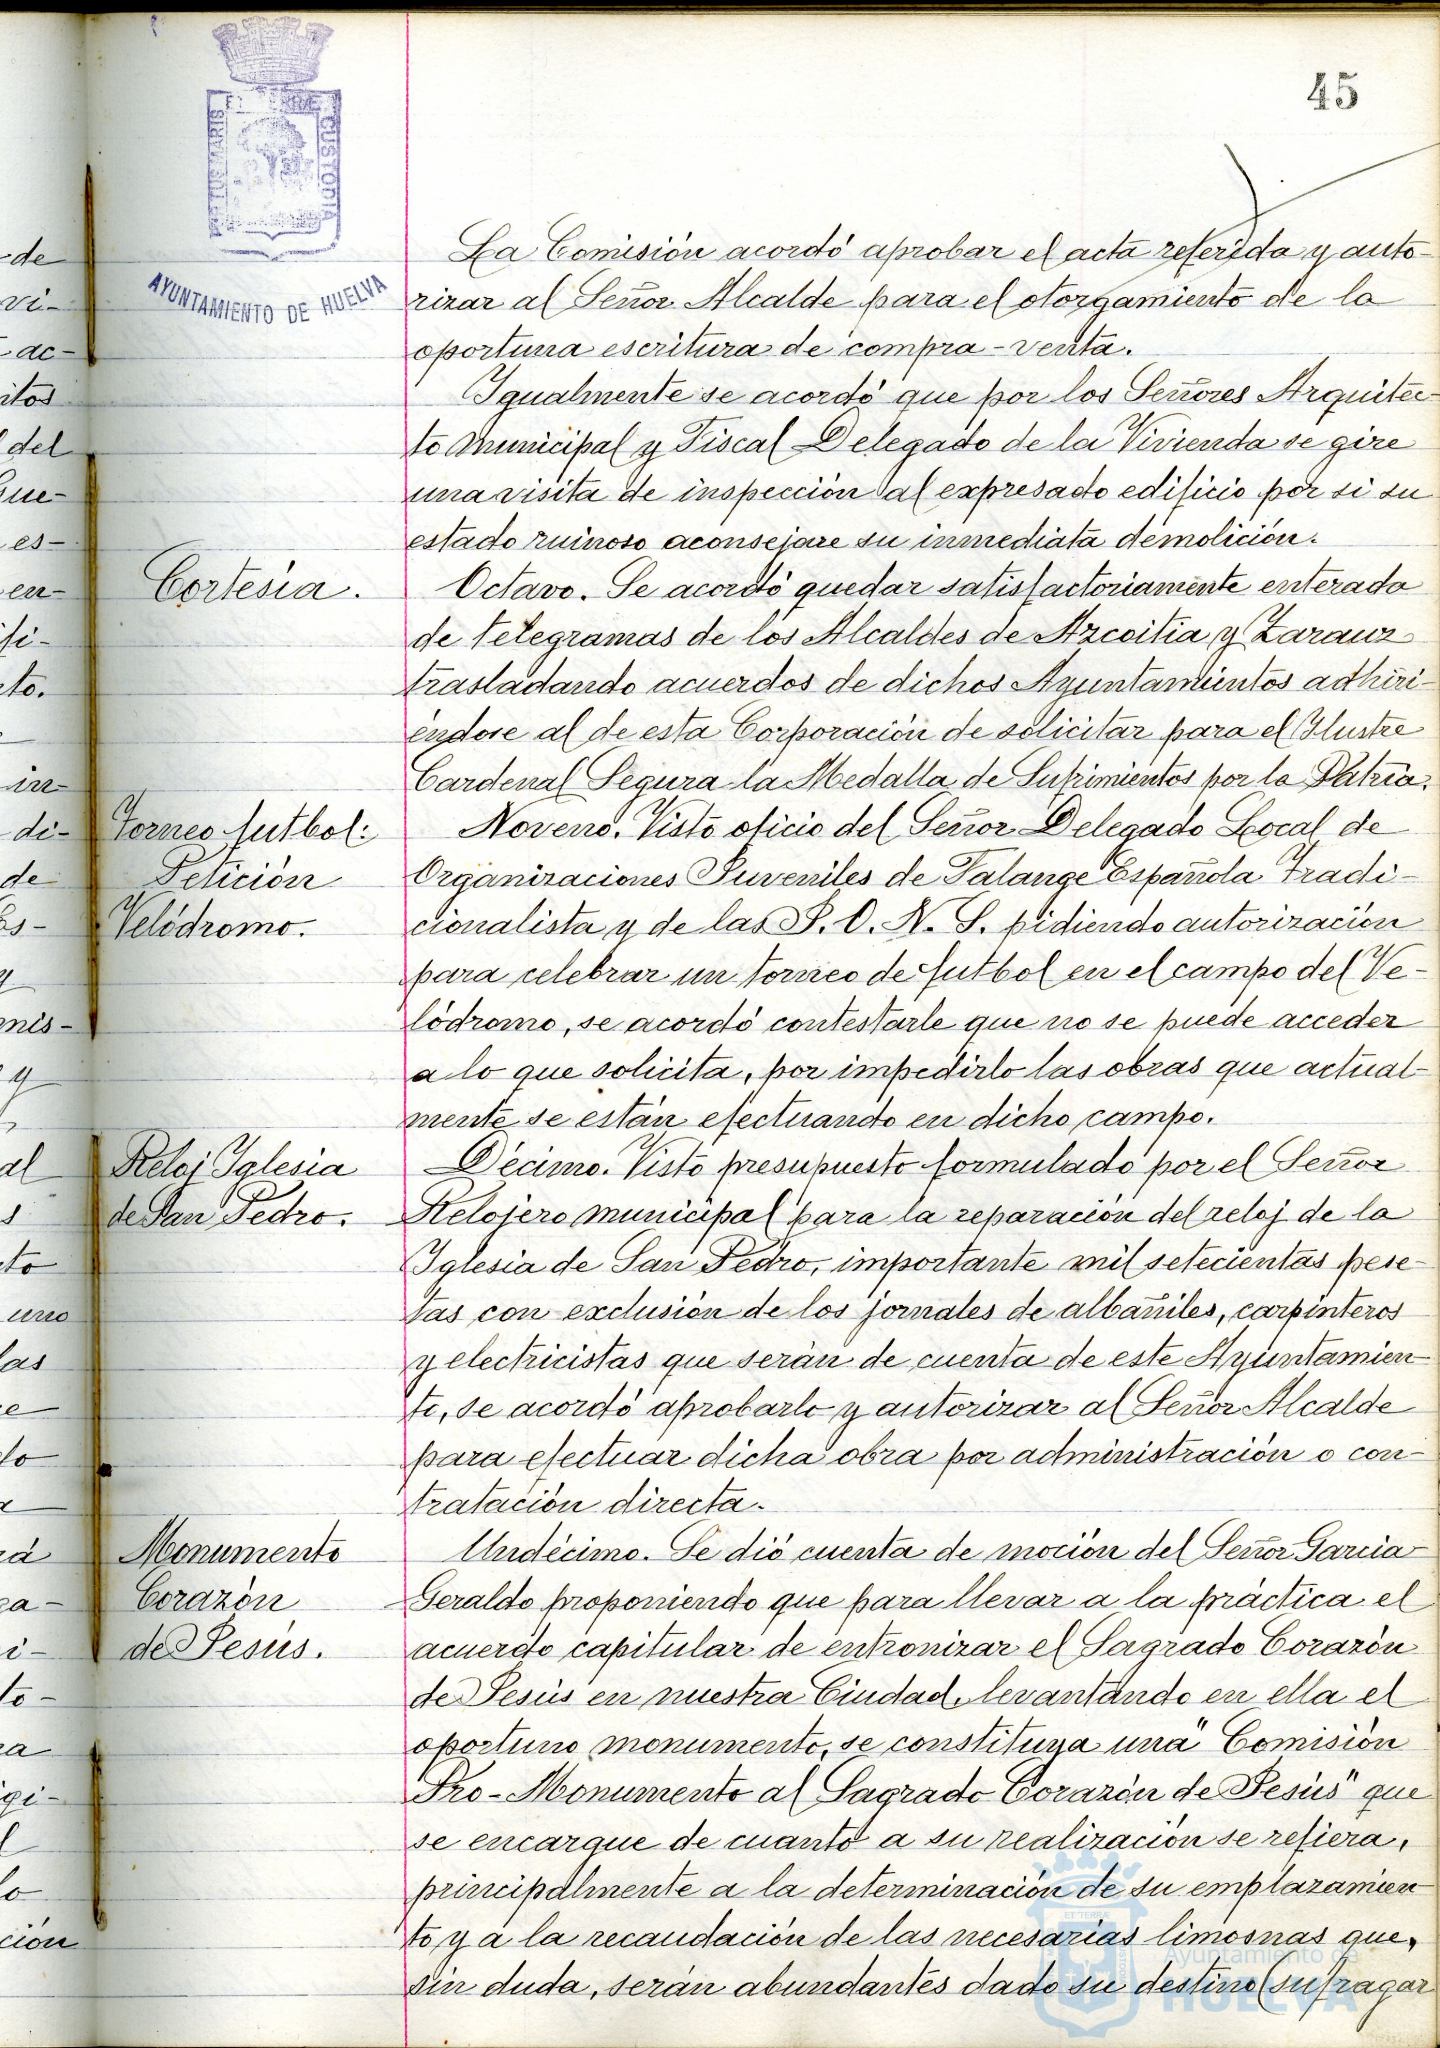 45
PORTUS MARIS ET TERRE CUSTODIA
AYUNTAMIENTO DE HUELVA
La Comisión acordó aprobar el acta referida y auto-
rizar al Señor Alcalde para el otorgamiento de la
oportuna escritura de compra-venta.
Igualmente se acordó que por los Señores Arquitec-
to Municipal y Fiscal Delegado de la Vivienda se gire
una visita de inspección al expresado edificio por si su
estado ruinoso aconsejare su inmediata demolición.
Cortesía.
Octavo. Se acordó quedar satisfactoriamente enterado
de telegramas de los Alcaldes de Azcoitia y Zarauz
trasladando acuerdos de dichos Ayuntamientos adhiri-
éndose al de esta Corporación de solicitar para el Ilustre
Cardenal Segura la Medalla de Sufrimientos por la Patria.
Torneo futbol:
Petición
Velódromo.
Noveno. Visto oficio del Señor Delegado Local de
Organizaciones Juveniles de Falange Española Tradi-
cionalista y de las J. O. N. S. pidiendo autorización
para celebrar un torneo de futbol en el campo del Ve-
lódromo, se acordó contestarle que no se puede acceder
a lo que solicita, por impedirlo las obras que actual-
mente se están efectuando en dicho campo.
Reloj Iglesia
de San Pedro.
Décimo. Visto presupuesto formulado por el Señor
Relojero municipal para la reparación del reloj de la
Iglesia de San Pedro, importante mil setecientas pese-
tas con exclusión de los jornales de albañiles, carpinteros
y electricistas que serán de cuenta de este Ayuntamien-
to, se acordó aprobarlo y autorizar al Señor Alcalde
para efectuar dicha obra por administración o con-
tratación directa.
Monumento
Corazón
de Jesús.
Undécimo. Se dió cuenta de moción del Señor Garcia
Geraldo proponiendo que para llevar a la práctica el
acuerdo capitular de entronizar el Sagrado Corazón
de Jesús en nuestra Ciudad, levantando en ella el
oportuno monumento, se constituya una "Comisión
Pro-Monumento al Sagrado Corazón de Jesús" que
se encargue de cuanto a su realización se refiera,
principalmente a la determinación de su emplazamien-
to y a la recaudación de las necesarias limosnas que,
sin duda, serán abundantes dado su destino (sufragar
Ayuntamiento de
HUELVA